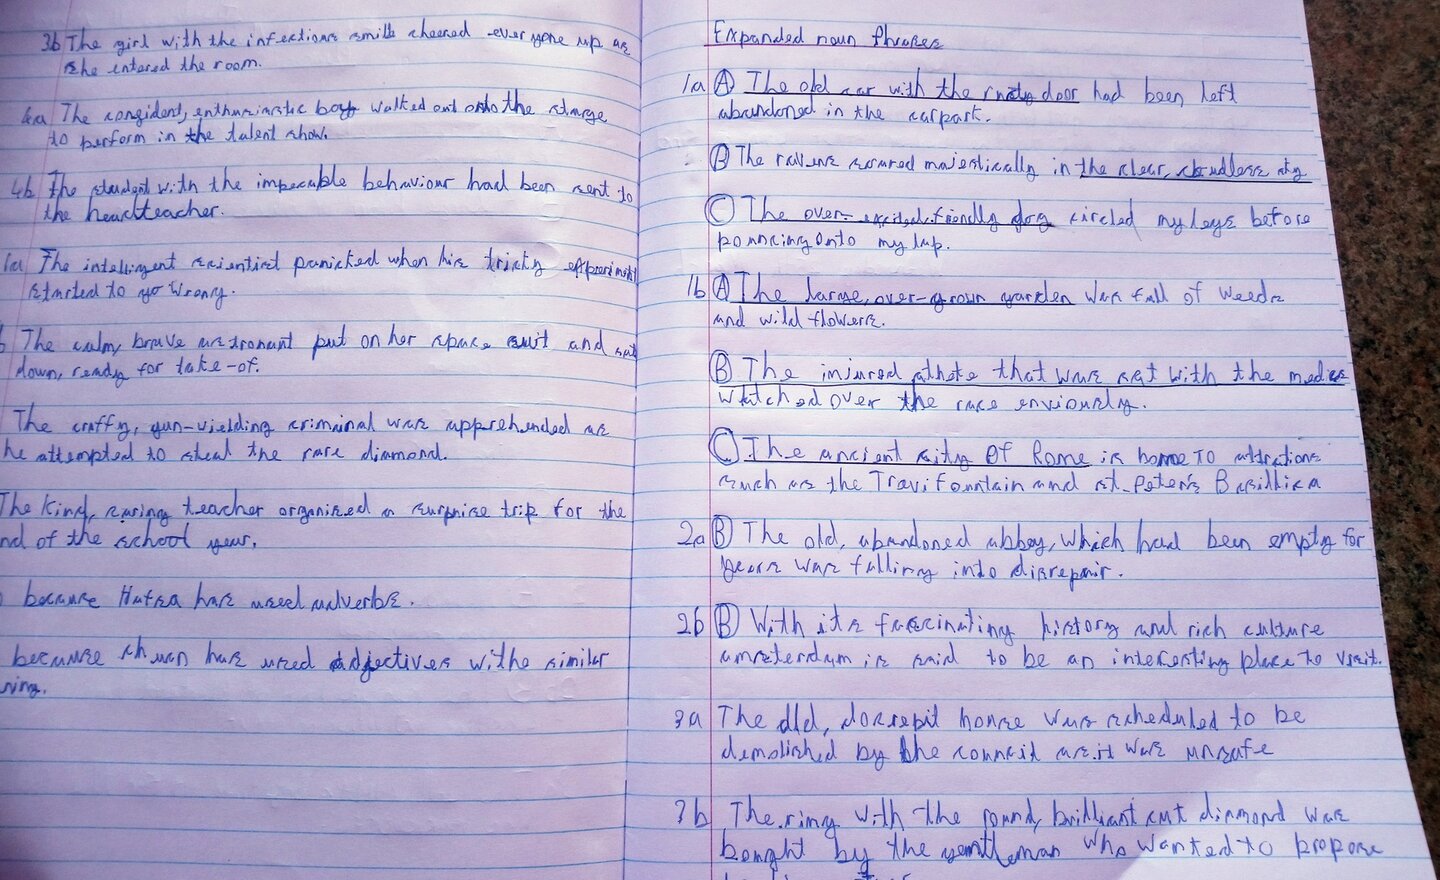 3b The girl with the infectious smile cheered everyone up as
she entered the room.
4a The congident, enthusiastic boy walked out onto the starge
to perform in the talent show.
4b The student with the impecable behaviour had been sent to
the headteacher.
The intelligent scientist panicked when his tricky
started to go wrong.
The calm, brave astronaut put on her space suit and sat
down, ready for take-of.
The crafty, gun-wielding criminal was apprehended as
he attempted to steal the rare diamond.
The kind, caring teacher organised a surprise trip for the
nd of the school year.
because has used adverbs.
because has used adjectives withe similar
ning.
Expanded noun Phrases
1a A The old car with the rusty door had been left
abandoned in the carpark.
B The soared majestically in the clear, cloudless sky
C The over-excited, friendly dog circled my legs before
pouncing onto my lap.
1b A The large, over-grown garden was full of weeds
and wild flowers.
B The injured athete that was sat with the medics
watched over the race enviously.
C The ancient city Of Rome is home TO attractions
such as the Travi fountain and st. Peter's Basillica
2a B The old, abandoned abbey, which had been empty for
years was falling into disrepair.
2b B With its fascinating history and rich culture
amsterdam is said to be an interesting place to visit.
3a The old, house was scheduled to be
demolished by the council as it was unsafe
3b The ring with the round, brilliant cut diamond was
bought by the gentleman who wanted to propose